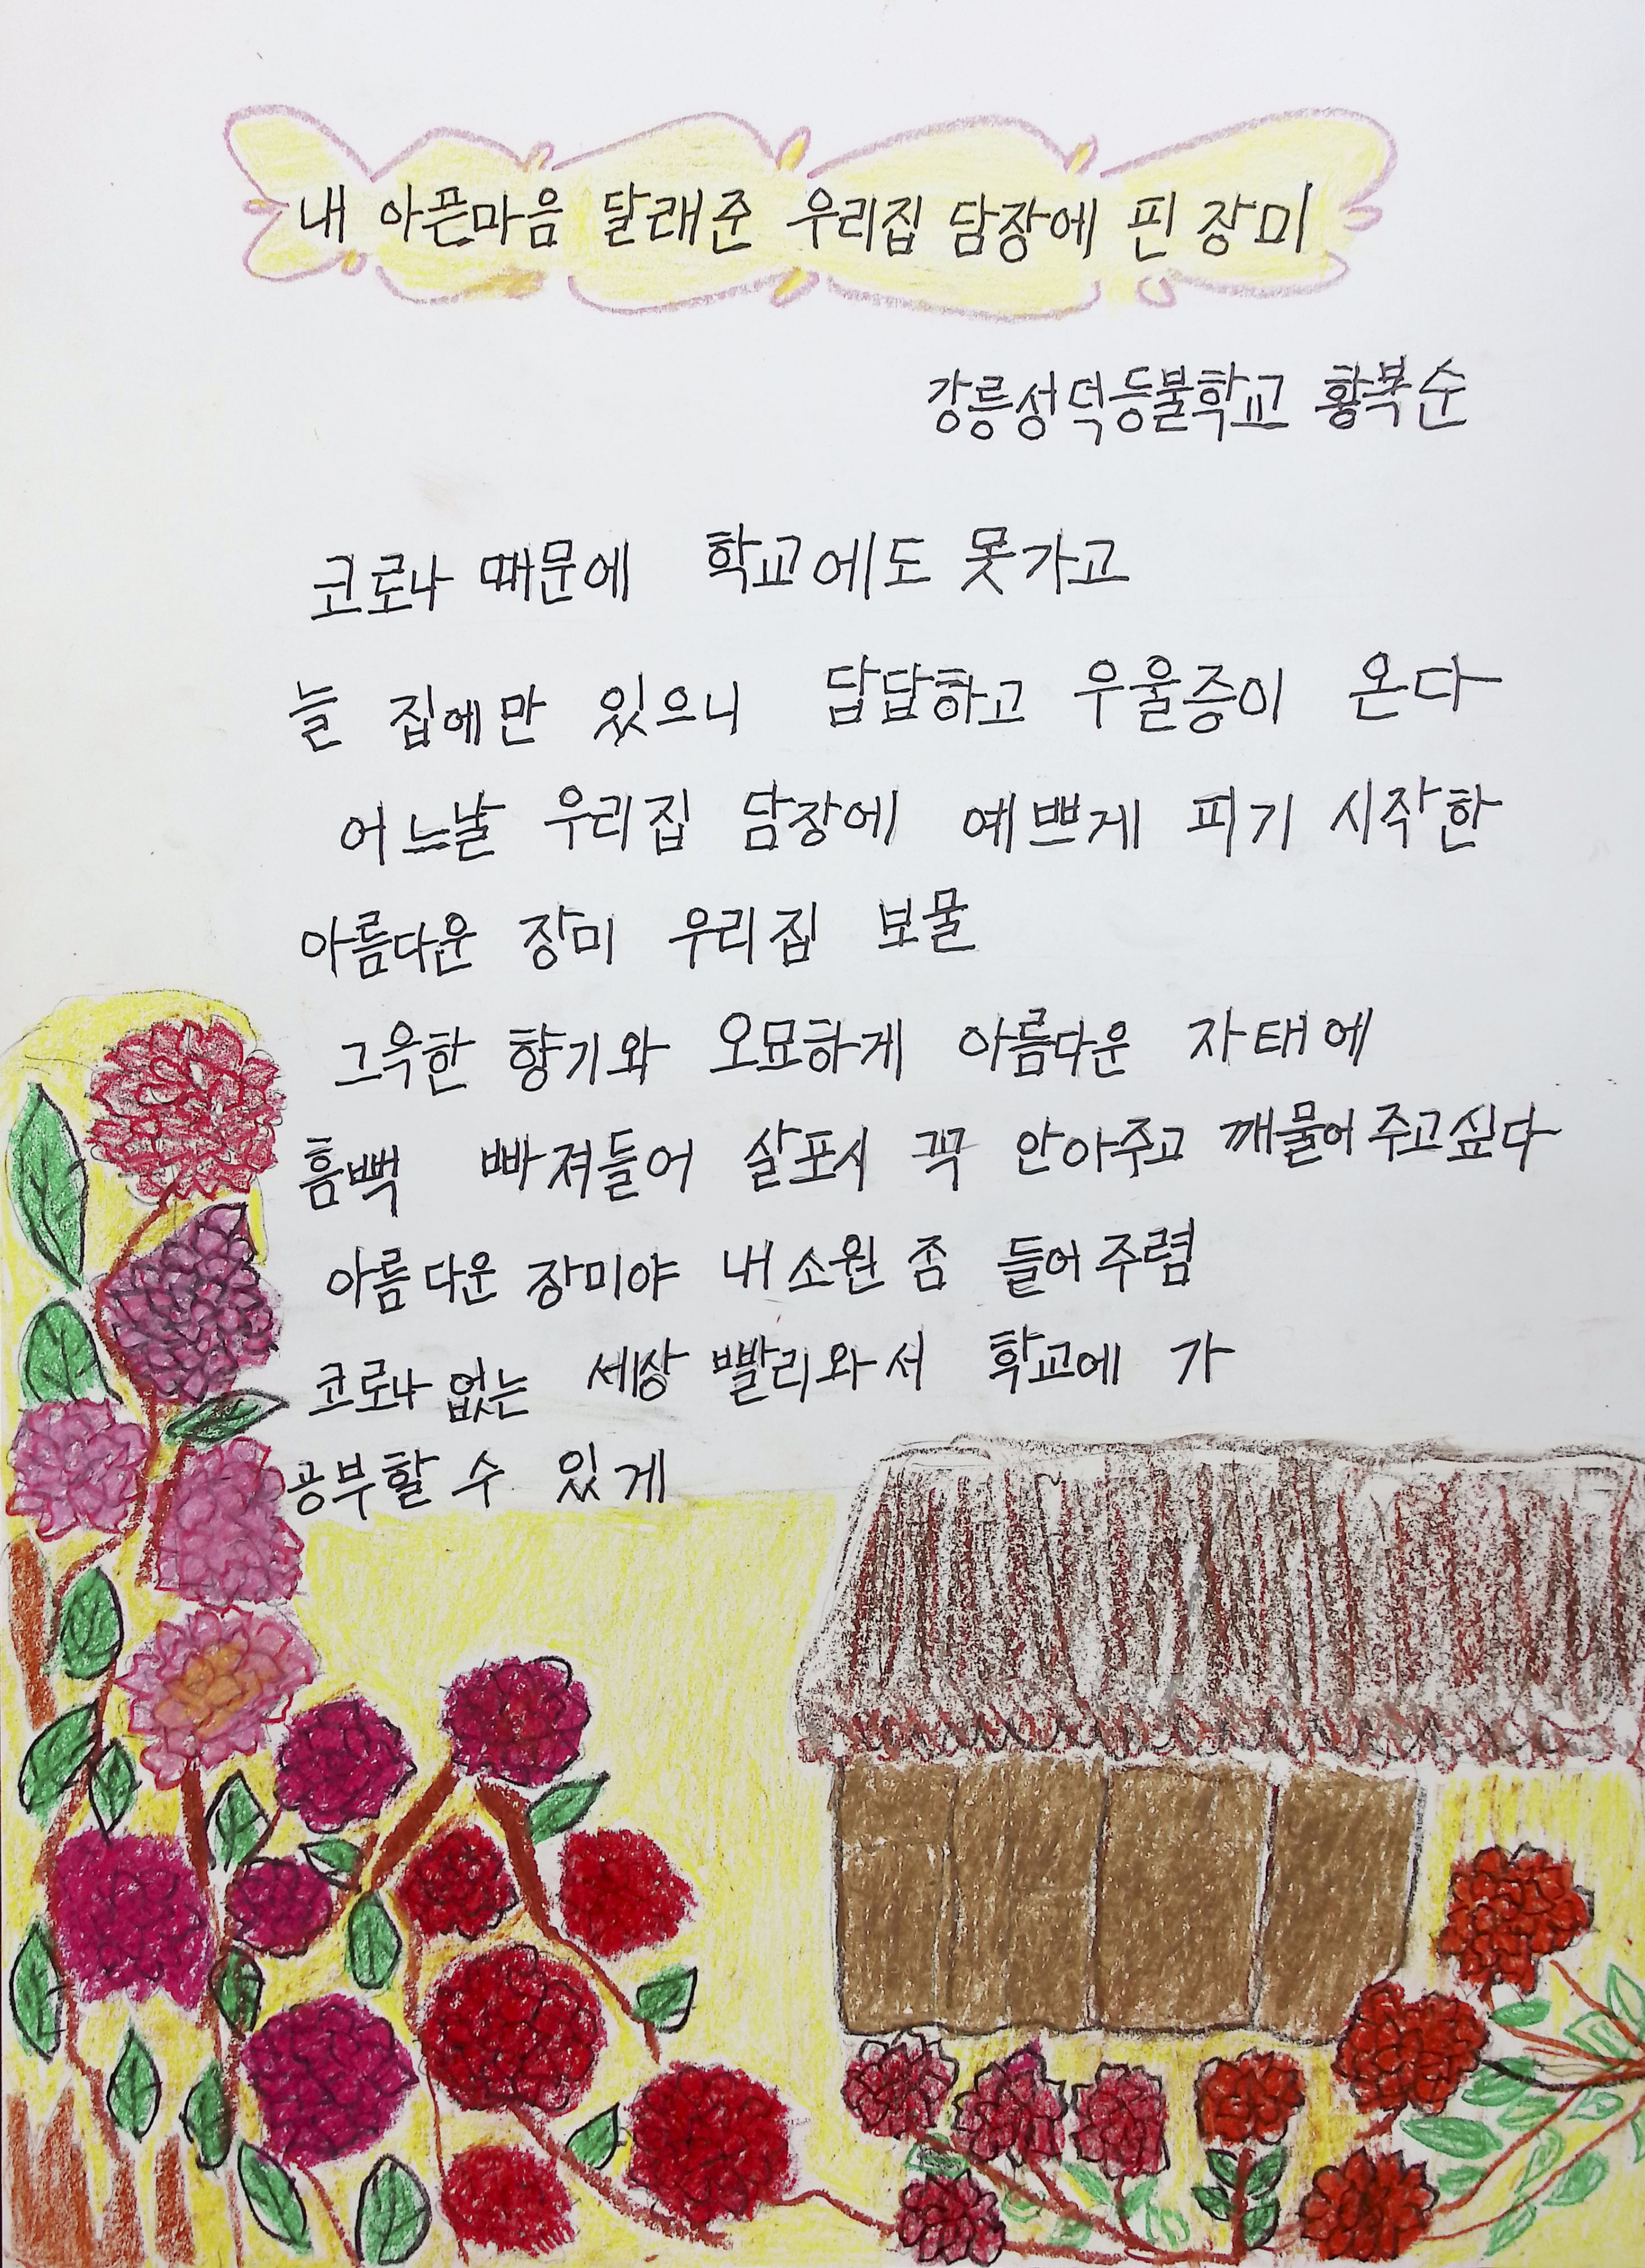 내 아픈마음 달래준 우리집 담장에 핀 장미
강릉성덕등불학교 황복순
코로나 때문에 학교에도 못가고
늘 집에만 있으니 답답하고 우울증이 온다
어느날 우리집 담장에 예쁘게 피기 시작한
아름다운 장미 우리집 보물
그윽한 향기와 오묘하게 아름다운 자태에
흠뻑 빠져들어 살포시 꼭 안아주고 깨물어주고싶다
아름다운 장미야 내소원 좀 들어주렴
코로나없는 세상 빨리와서 학교에 가
공부할 수 있게